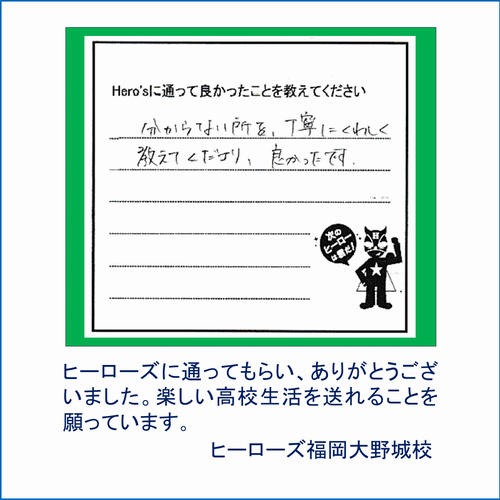 Hero'sに通って良かったことを教えてください
分からない所を、丁寧にくわしく
教えてくださり、良かったです.
次の
ヒーロー
は君だ!
H
ヒーローズに通ってもらい、ありがとうござ
いました。楽しい高校生活を送れることを
願っています。
ヒーローズ福岡大野城校